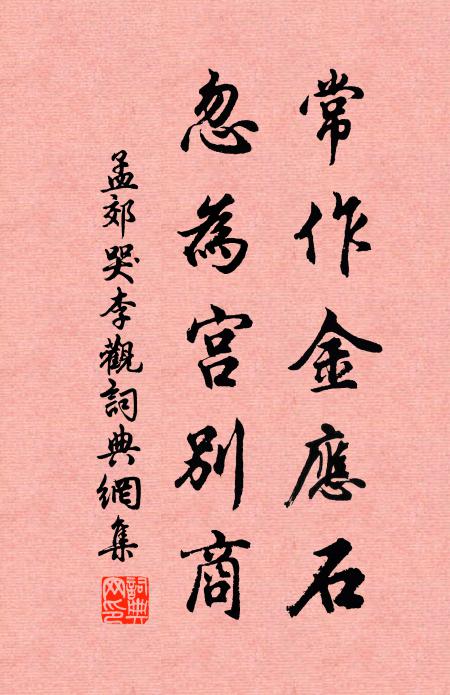 常作金應石
忽為宮別商
孟郊哭李觀詞典網集
詞典網印